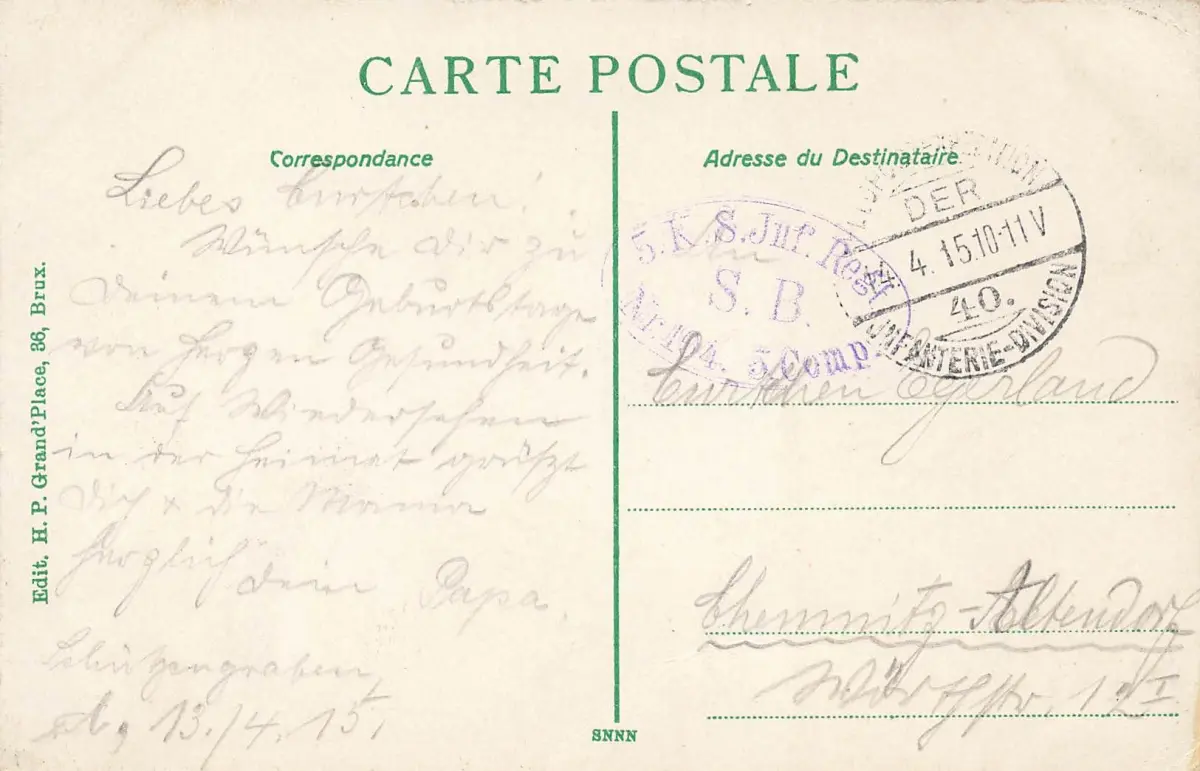 CARTE POSTALE
Correspondance
Liebes Curtchen!
Wünsche Dir zu
Deinem Geburtstage
von Herzen Gesundheit.
Auf Wiedersehen
in der Heimat grüßt
Dich + die Mama
herzlich
Dein Papa.
Schützengraben,
13./4.15.
Adresse du Destinataire
An
Curtchen Egerland
Chemnitz-Altendorf
Wörthstr. 12 I
5.K.S.Inf.Regt
S. B.
Nr.104. 5.Comp.
DER
4. 15.10-11 V
40.
INFANTERIE-DIVISION
Edit. H. P. Grand'Place, 36, Brux.
SNNN